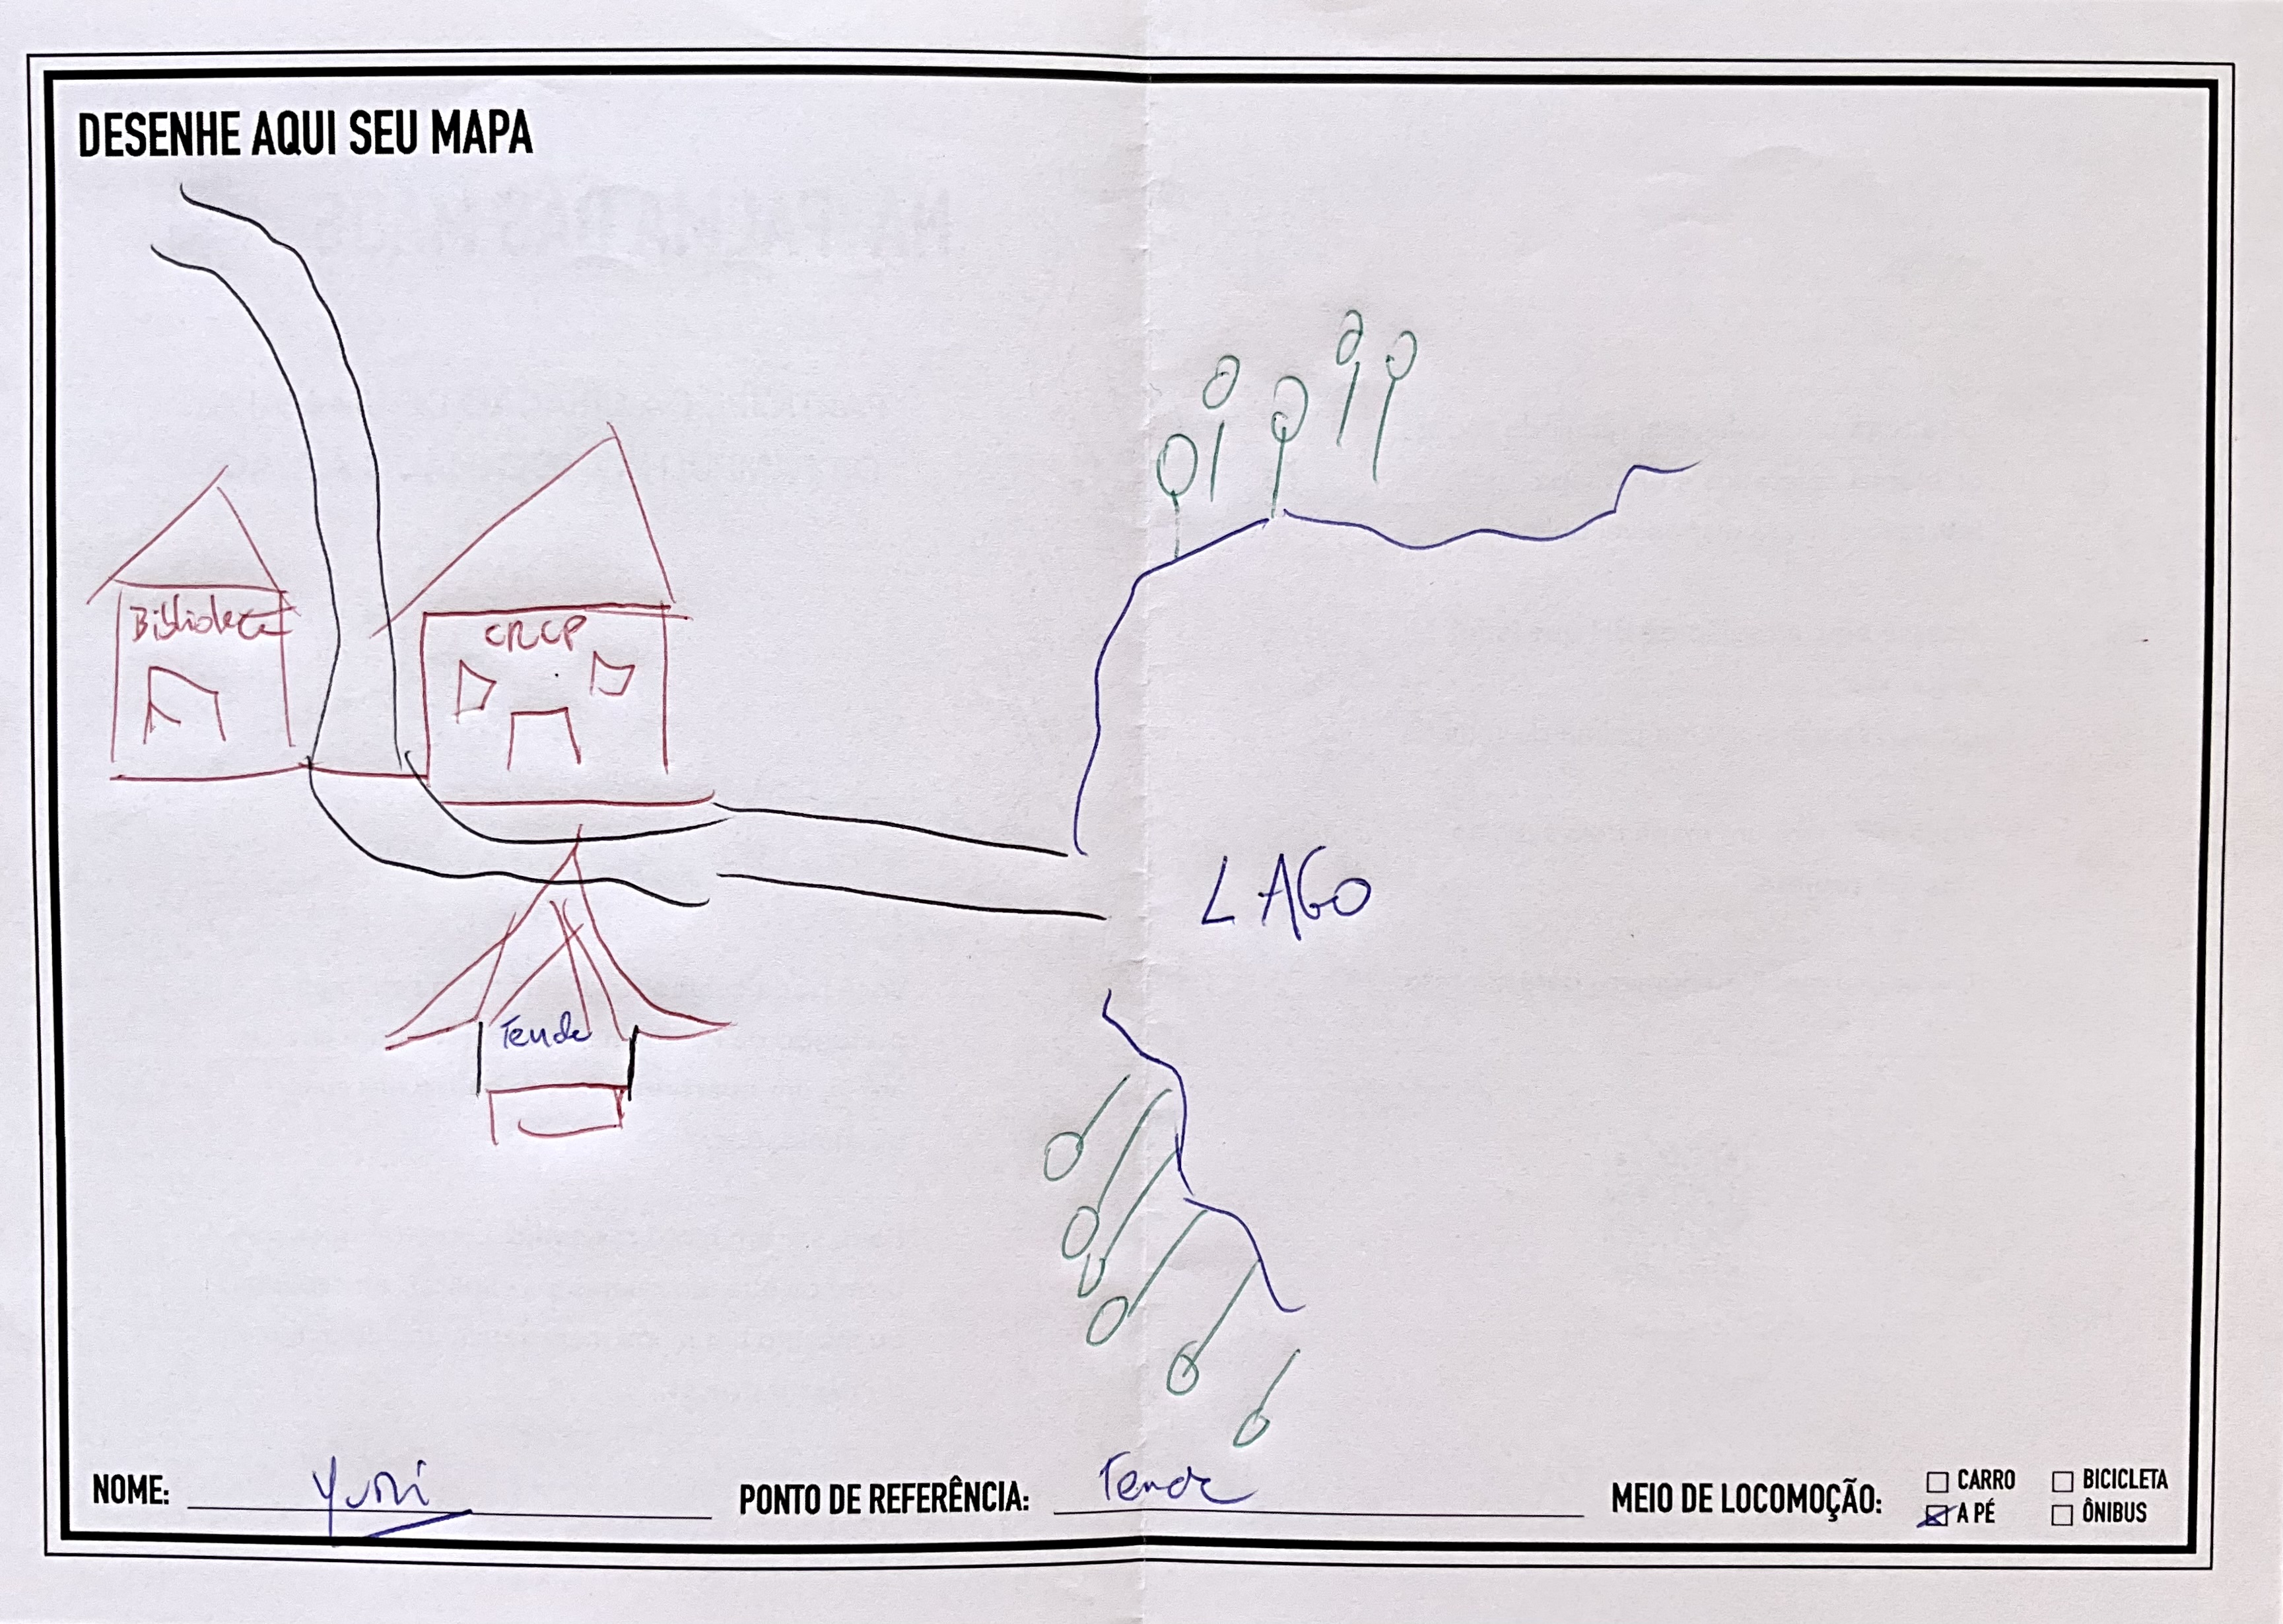 DESENHE AQUI SEU MAPA
Biblioteca
CRCP
LAGO
Tenda
NOME: Yuri
PONTO DE REFERÊNCIA: Tenda
MEIO DE LOCOMOÇÃO:
CARRO
BICICLETA
A PÉ
ÔNIBUS